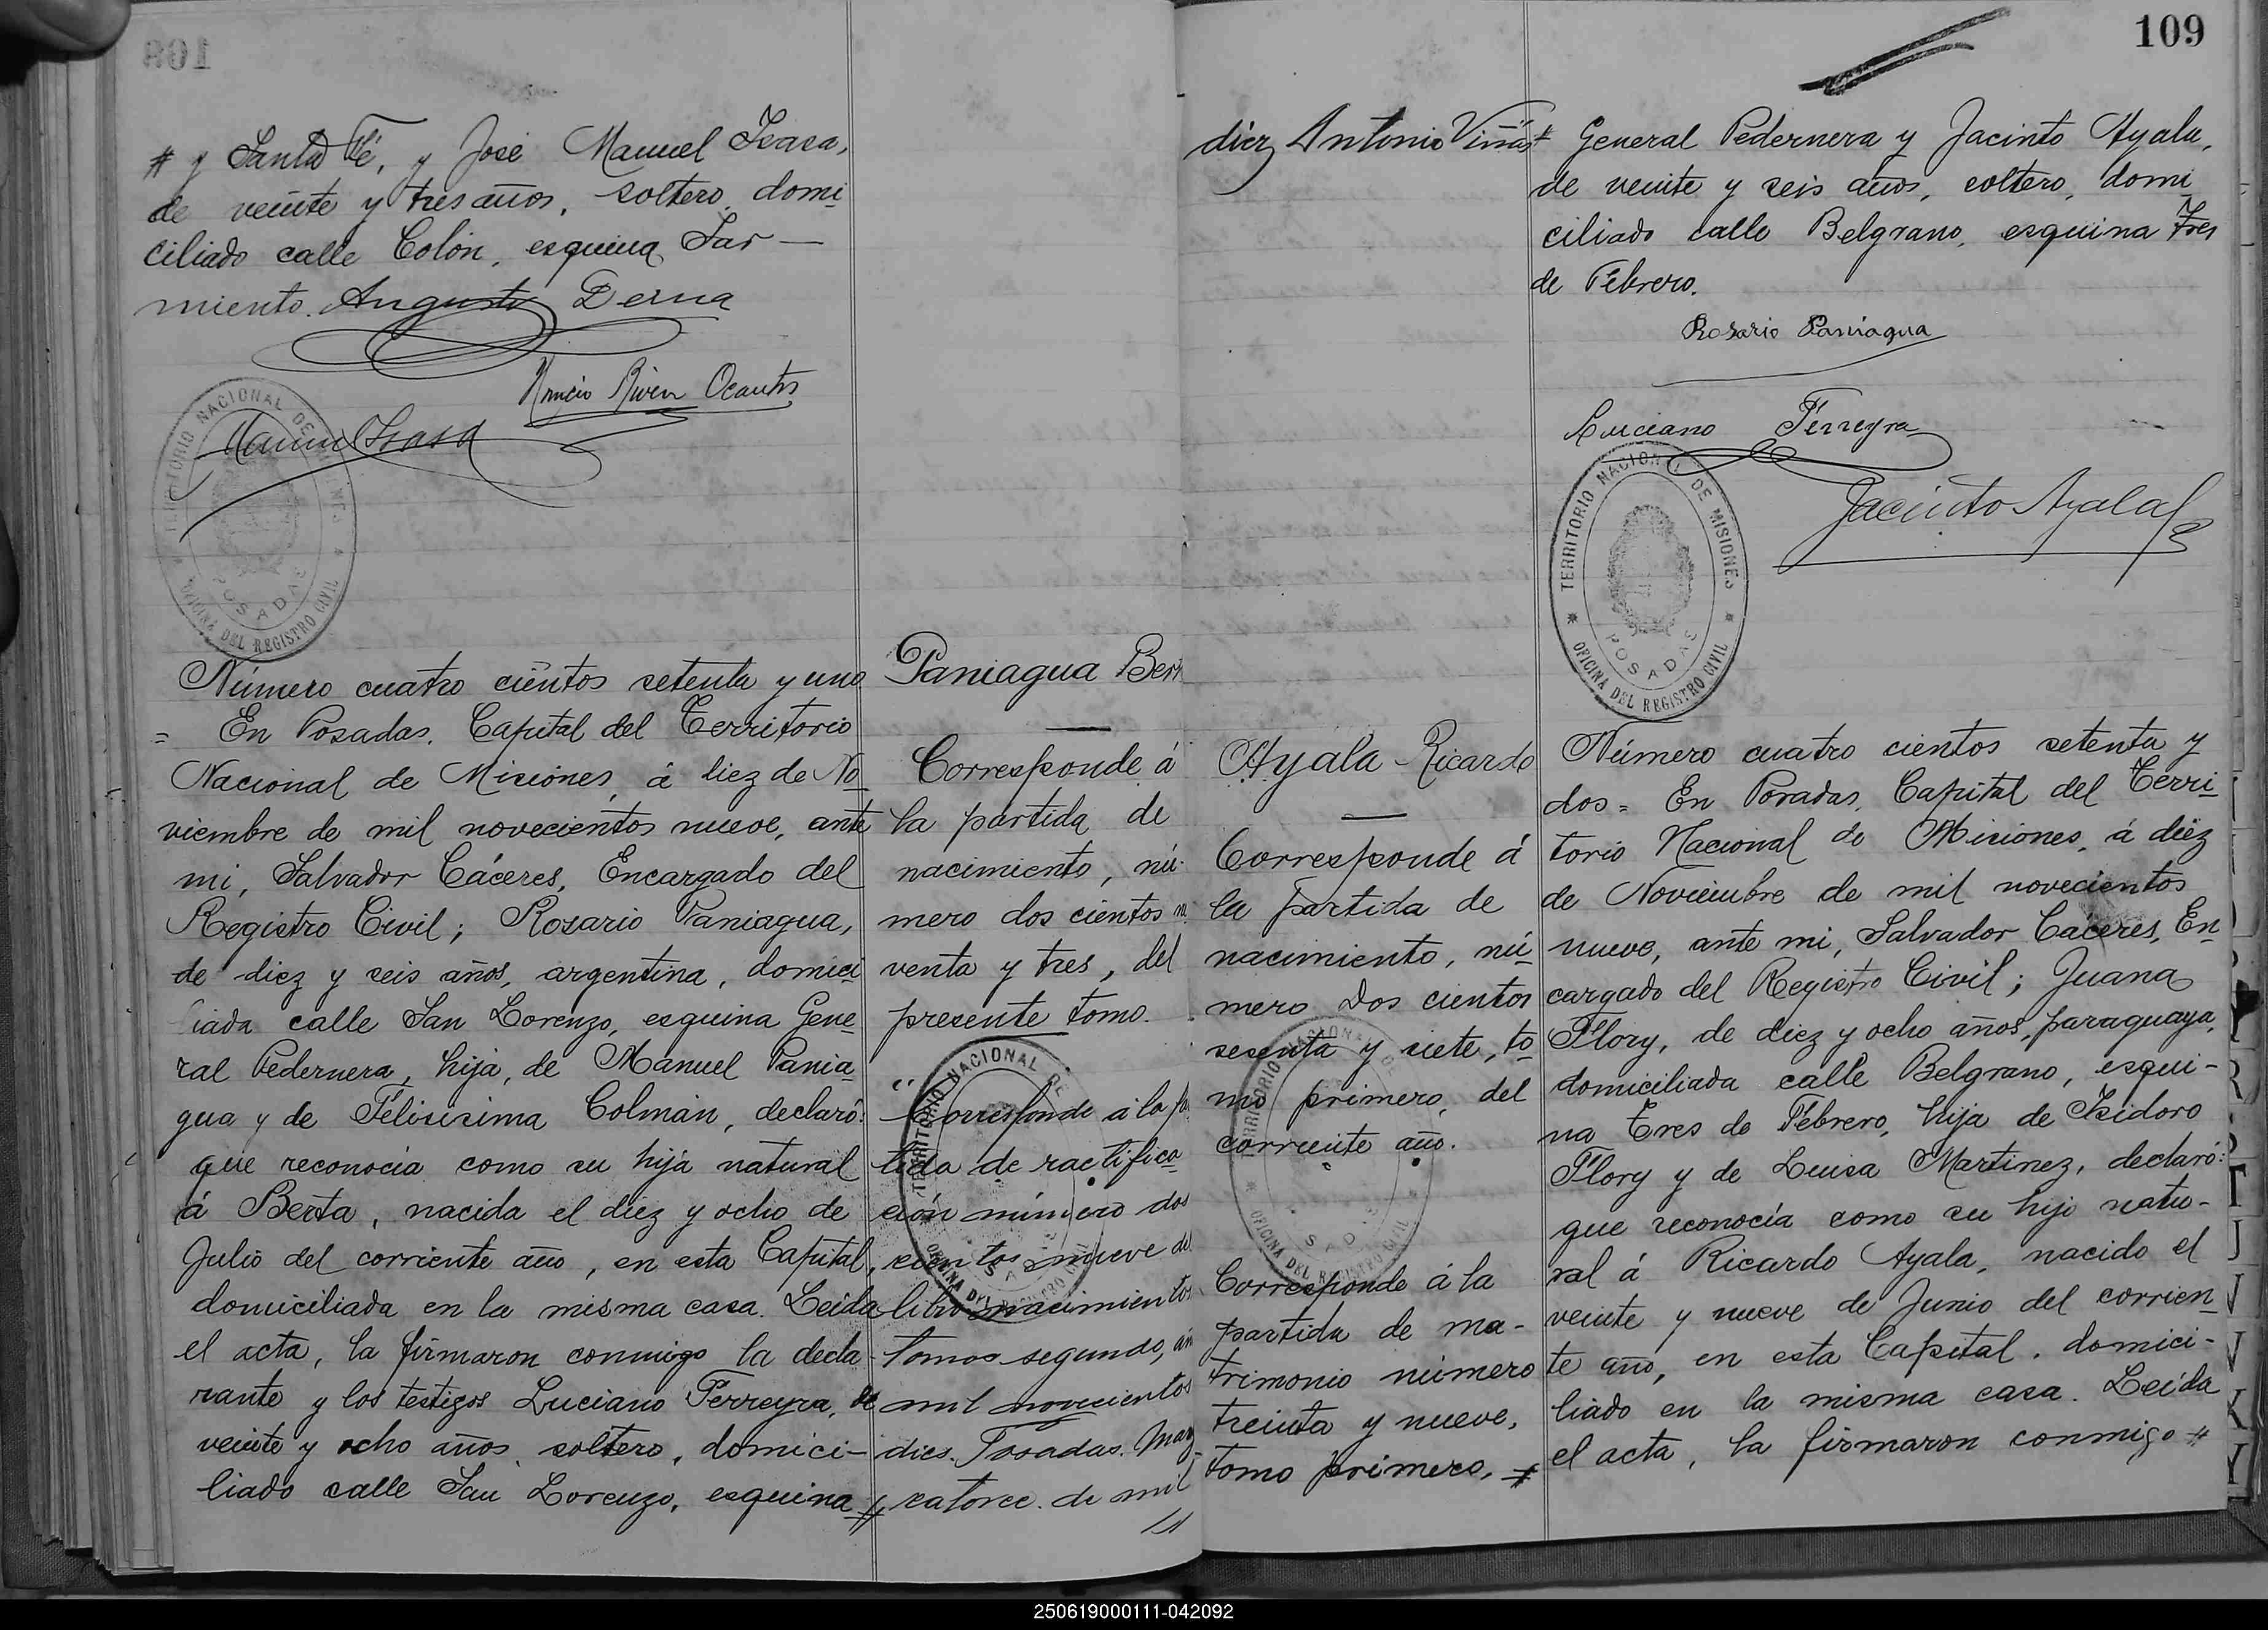 # y Santa Fé, y José Manuel Isasa,
de veinte y tres años, soltero, domi
ciliado calle Colón, esquina Sar—
miento. Augusto Derna
Ocantos
Manuel Isasa
TERRITORIO NACIONAL DE MISIONES
POSADAS
OFICINA DEL REGISTRO CIVIL
Número cuatro cientos setenta y uno
= En Posadas, Capital del Territorio
Nacional de Misiones, á diez de No
viembre de mil novecientos nueve, ante
mi, Salvador Cáceres, Encargado del
Registro Civil; Rosario Paniagua,
de diez y seis años, argentina, domici
liada calle San Lorenzo, esquina Gene
ral Pedernera, hija, de Manuel Pania
gua y de Felisisima Colmán, declaró:
que reconocía como su hija natural
á Berta, nacida el diez y ocho de
Julio del corriente año, en esta Capital,
domiciliada en la misma casa. Leída
el acta, la firmaron conmigo la decla
rante y los testigos Luciano Ferreyra, de
veinte y ocho años, soltero, domici—
liado calle San Lorenzo, esquina #
Paniagua Ber
Corresponde á
la partida de
nacimiento, nú-
mero dos cientos n
venta y tres, del
presente tomo.
TERRITORIO NACIONAL DE
OFICINA DEL REGISTRO CIVIL
"Corresponde á la p
tida de ractifica
ción número dos
cientos nueve del
libro nacimientos
tomos segundo, añ
mil novecientos
dies. Posadas. Marz
catorce. de mil
109
diez Antonio Viñas
Ayala Ricardo
Corresponde á
la partida de
nacimiento, nú
mero dos cientos
sesenta y siete, to
mo primero, del
corriente año.
TERRITORIO NACIONAL DE
OFICINA DEL REGISTRO CIVIL
Corresponde á la
partida de ma-
trimonio número
treinta y nueve,
tomo primero, #
# General Pedernera y Jacinto Ayala,
de veinte y seis años, soltero, domi
ciliado calle Belgrano, esquina Tres
de Febrero.
Rosario Paniagua
Luciano Ferreyra
Jacinto Ayala
TERRITORIO NACIONAL DE MISIONES
POSADAS
OFICINA DEL REGISTRO CIVIL
Número cuatro cientos setenta y
dos = En Posadas, Capital del Terri
torio Nacional de Misiones, á diez
de Noviembre de mil novecientos
nueve, ante mi, Salvador Cáceres, En
cargado del Registro Civil; Juana
Flory, de diez y ocho años, paraguaya,
domiciliada calle Belgrano, esqui-
na Tres de Febrero, hija de Isidoro
Flory y de Luisa Martinez, declaró:
que reconocía como su hijo natu-
ral á Ricardo Ayala, nacido el
veinte y nueve de Junio del corrien
te año, en esta Capital, domici-
liado en la misma casa. Leída
el acta, la firmaron conmigo #
250619000111-042092